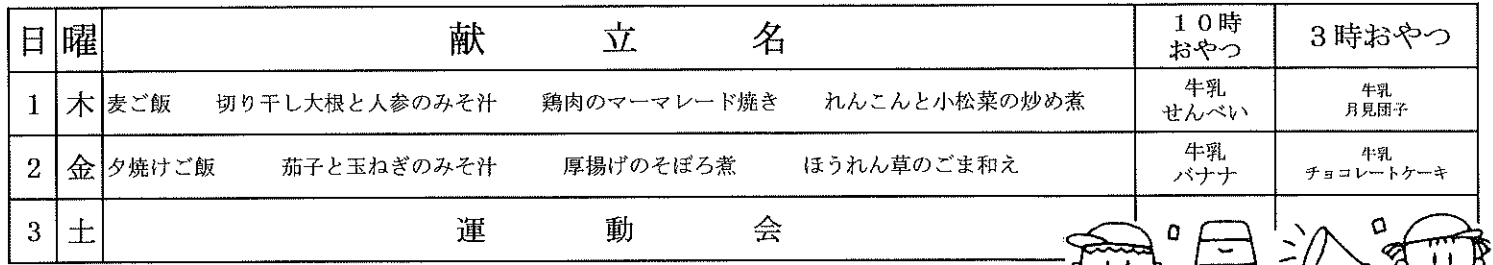 日 曜 献立名 10時おやつ 3時おやつ
1 木 麦ご飯 切り干し大根と人参のみそ汁 鶏肉のマーマレード焼き れんこんと小松菜の炒め煮 牛乳 せんべい 牛乳 月見団子
2 金 夕焼けご飯 茄子と玉ねぎのみそ汁 厚揚げのそぼろ煮 ほうれん草のごま和え 牛乳 バナナ 牛乳 チョコレートケーキ
3 土 運動会